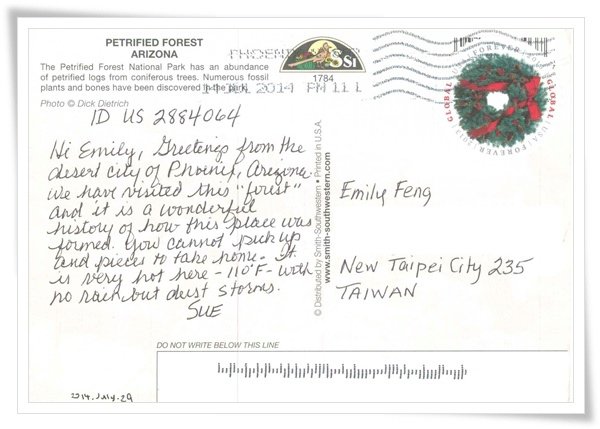 PETRIFIED FOREST
ARIZONA
The Petrified Forest National Park has an abundance
of petrified logs from coniferous trees. Numerous fossil
plants and bones have been discovered in the park.
Photo © Dick Dietrich
SSI
1784
PHOENIX
14 JUL 2014 PM 11 L
GLOBAL FOREVER 2013
GLOBAL USA FOREVER
ID US 2884064
Hi Emily, Greetings from the
desert city of Phoenix, Arizona.
we have visited this "forest"
and it is a wonderful
history of how this place was
formed. You cannot pick up
and pieces to take home. It
is very hot here - 110°F - with
no rain but dust storms.
SUE
© Distributed by Smith-Southwestern • Printed in U.S.A.
www.smith-southwestern.com
Emily Feng
New Taipei City 235
TAIWAN
DO NOT WRITE BELOW THIS LINE
2014.July.29